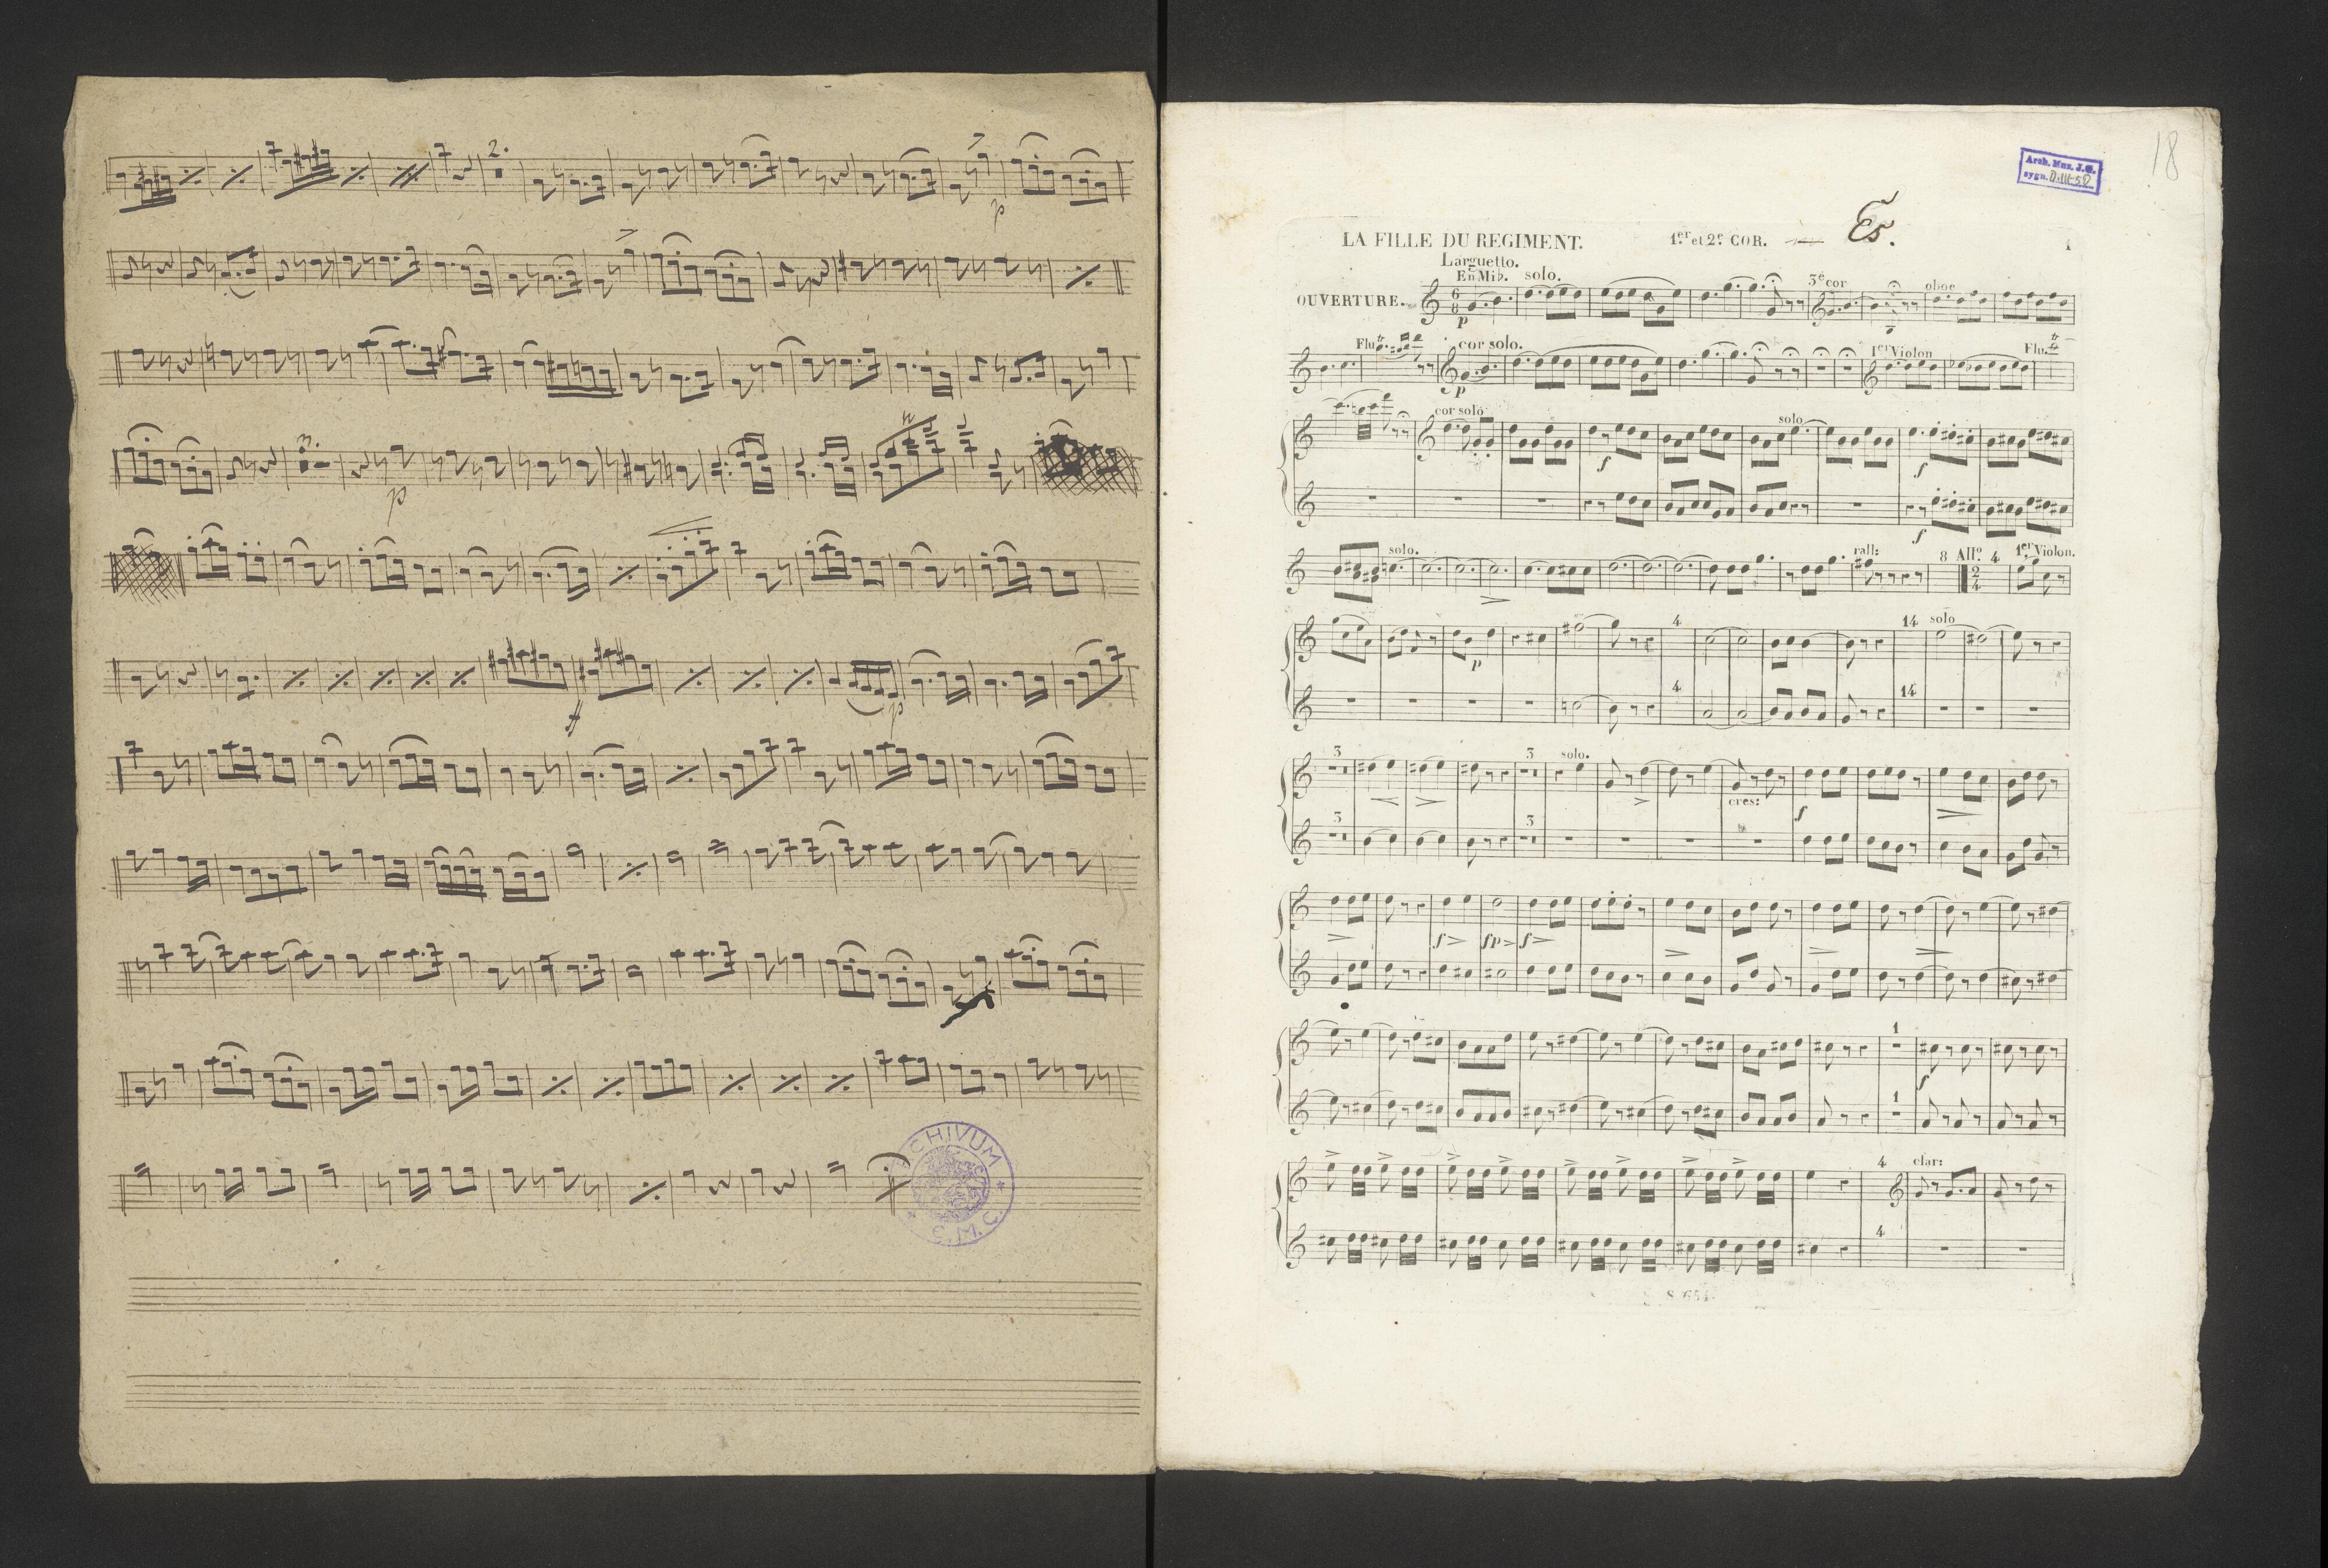 2.
p
p
3.
p
f
p
ARCHIVUM
C.M.C.
18
Arch. Muz. J.G.
sygn. D.III-52
Es.
LA FILLE DU REGIMENT. 1.er et 2.e COR. 1
Larguetto.
En Mi♭. solo.
OUVERTURE. p 3.e cor oboe
Flu: cor solo. 1.er Violon Flu.
p
cor solo solo
f f
f
solo. rall: 8 All.o 4 1.er Violon.
4 14 solo
p
4 14
3 3 solo.
cres: f
3 3
f fp f
1
f
1
4 clar:
4
S. 654.